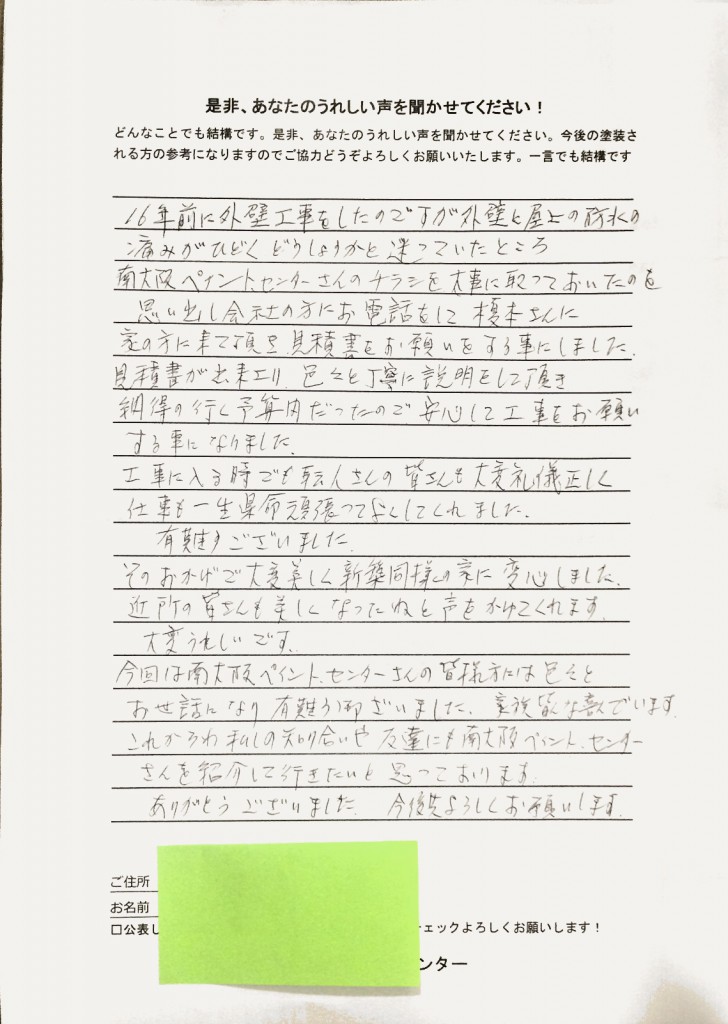 是非、あなたのうれしい声を聞かせてください！
どんなことでも結構です。是非、あなたのうれしい声を聞かせてください。今後の塗装さ
れる方の参考になりますのでご協力どうぞよろしくお願いいたします。一言でも結構です
16年前に外壁工事をしたのですが外壁と屋上の防水の
痛みがひどくどうしょうかと迷っていたところ
南大阪ペイント.センターさんのチラシを大事に取っておいたのを
思い出し会社の方にお電話をして榎本さんに
家の方に来て頂き見積書をお願いをする事にしました.
見積書が出来上り.色々と丁寧に説明をして頂き
納得の行く予算内だったので安心して工事をお願い
する事になりました.
工事に入る時でも職人さんの皆さんも大変礼儀正しく
仕事も一生県命頑張ってよくしてくれました.
有難うございました.
そのおかげで大変美しく新築同様の家に変心しました.
近所の皆さんも美しくなったねと声をかけてくれます.
大変うれしいです.
今回は南大阪ペイント.センターさんの皆様方には色々と
お世話になり有難う御ざいました.家族皆んな喜んでいます.
これからわ私しの知り合いや友達にも南大阪ペイント.センター
さんを紹介して行きたいと思っております.
ありがとうございました.今後共よろしくお願いします.
ご住所
お名前
□公表し
チェックよろしくお願いします！
ンター